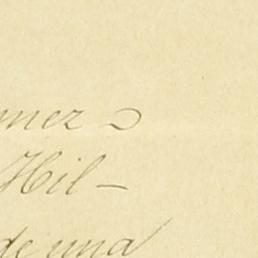 mez
Hil-
de una